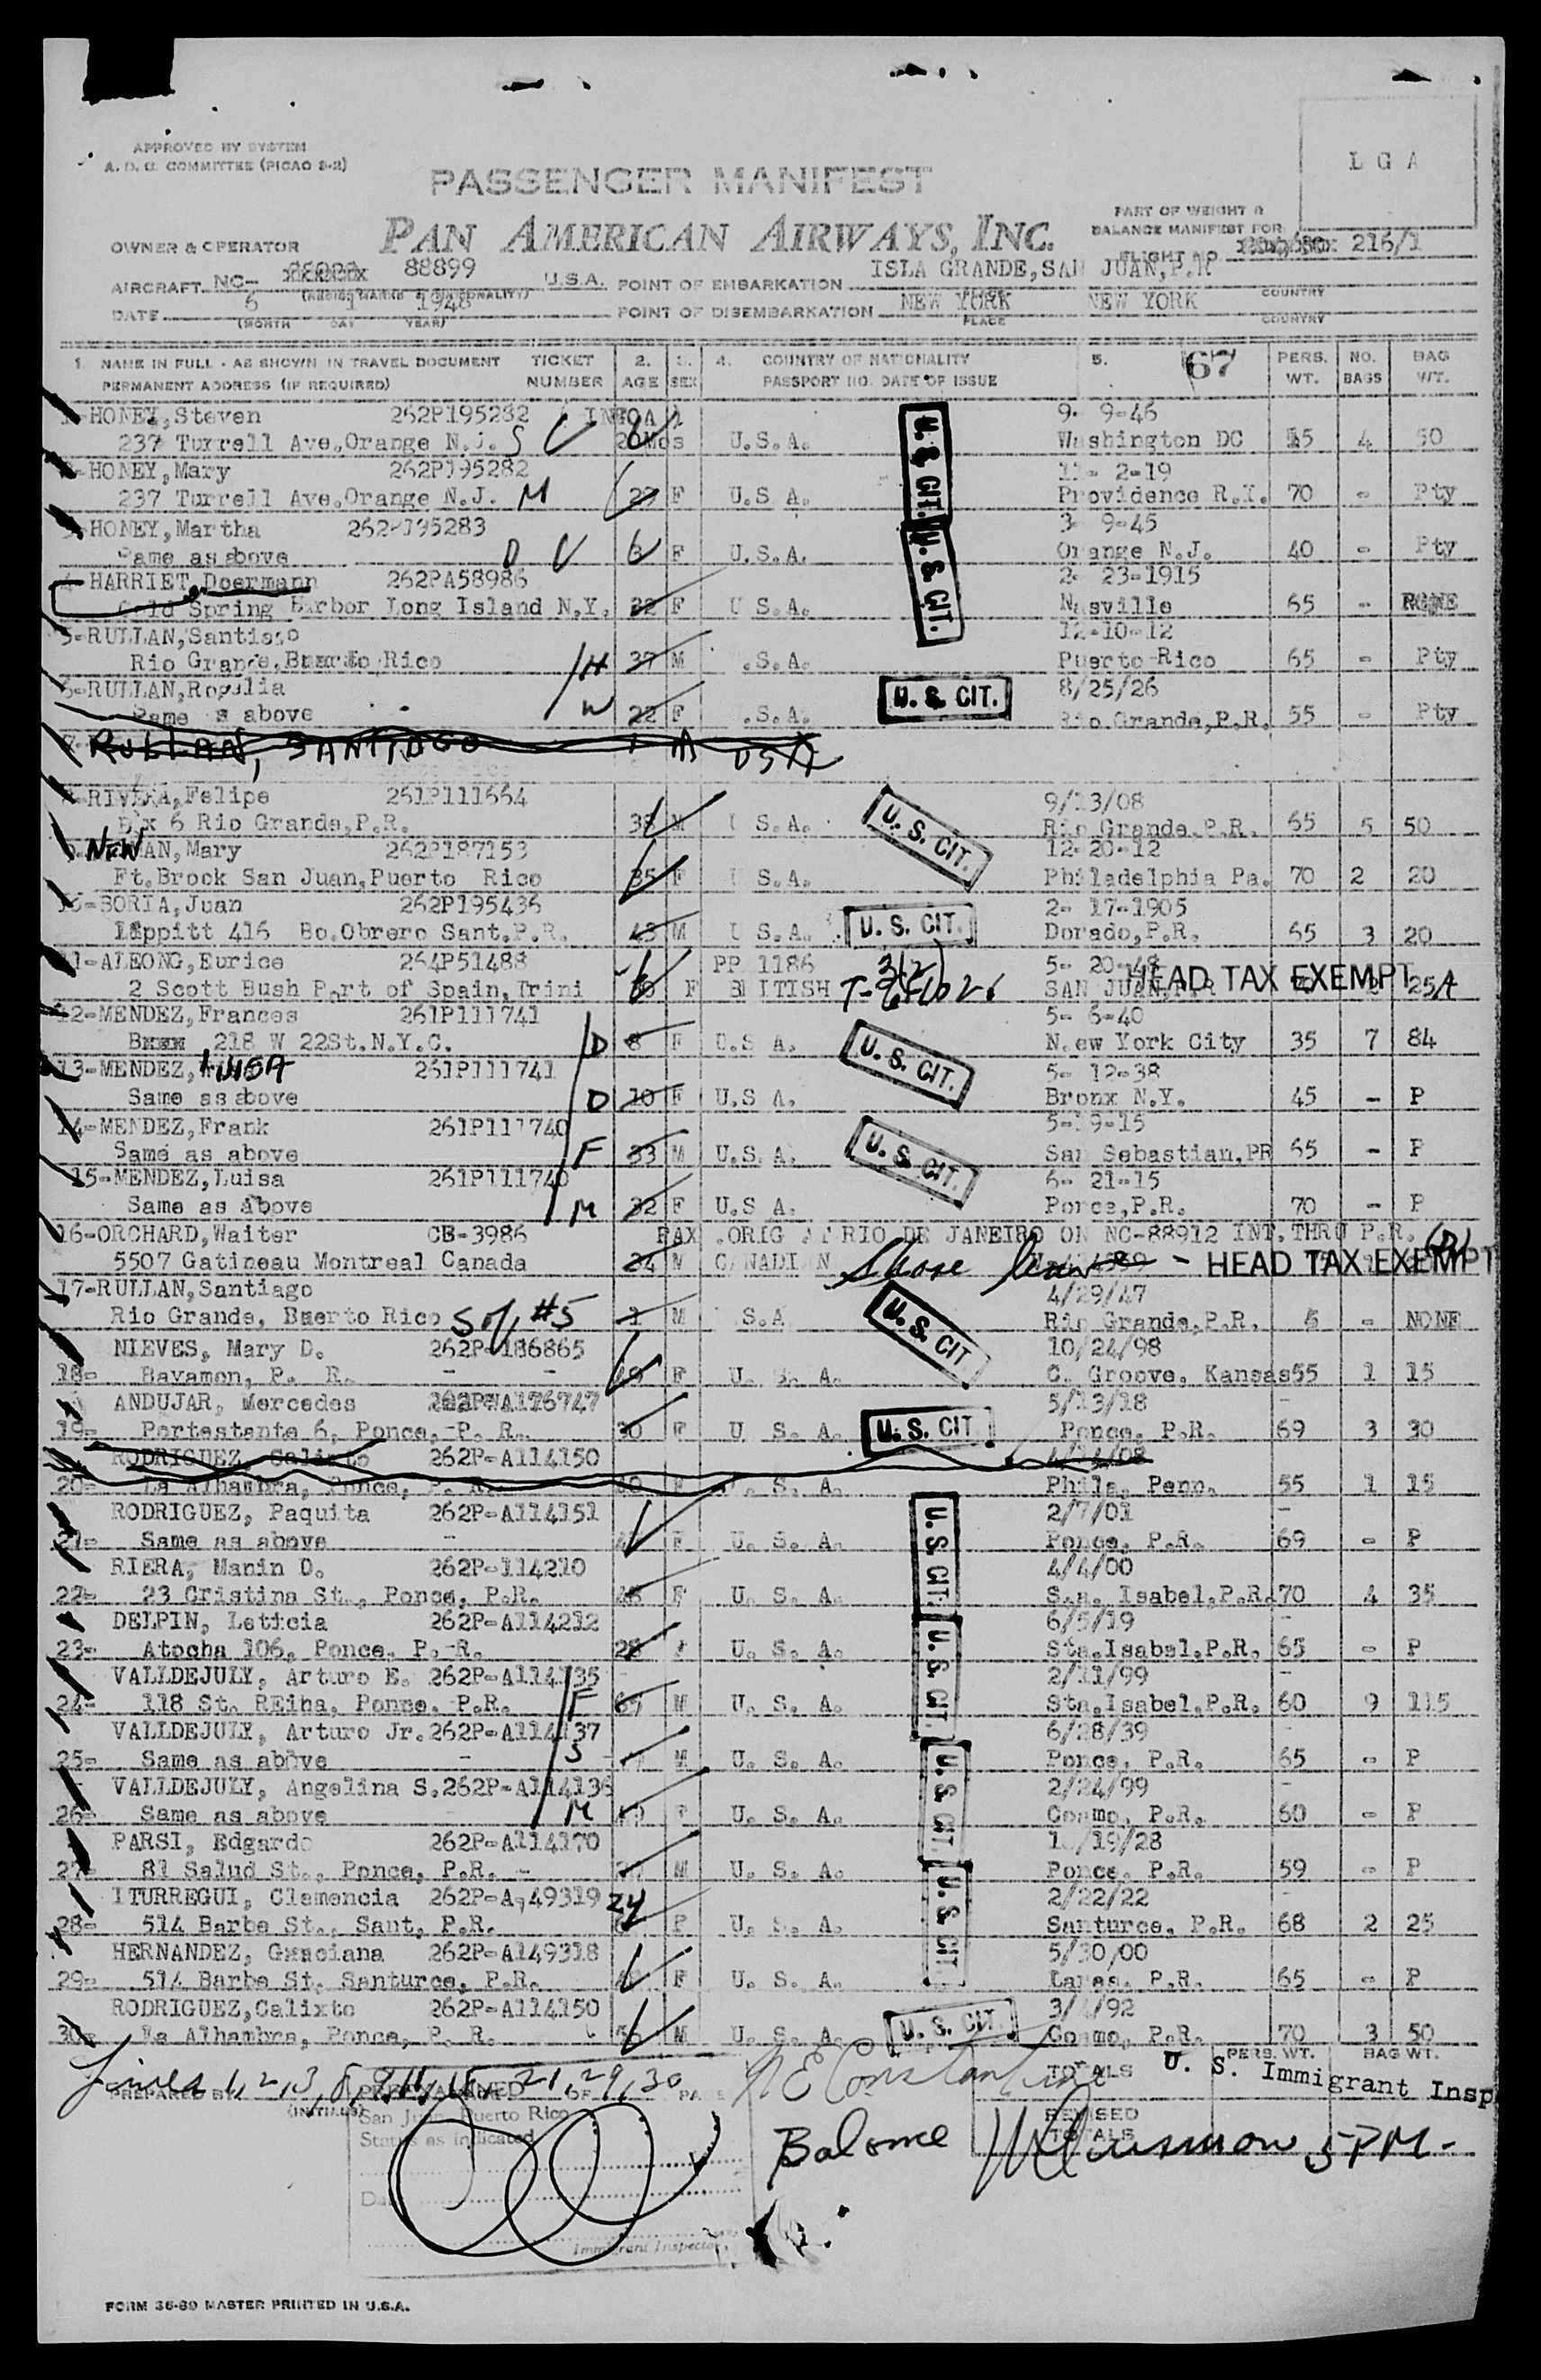 APPROVED BY SYSTEM
A. D. C. COMMITTEE (PICAO 2-2)
L G A
PASSENGER MANIFEST
PART OF WEIGHT &
BALANCE MANIFEST FOR
PAN AMERICAN AIRWAYS, INC.
OWNER & OPERATOR
FLIGHT NO. 216/1
AIRCRAFT NC- 88899 U.S.A. POINT OF EMBARKATION ISLA GRANDE, SAN JUAN, P.R
COUNTRY
DATE 6 1 1948 POINT OF DISEMBARKATION NEW YORK NEW YORK
(MONTH DAY YEAR) PLACE COUNTRY
1. NAME IN FULL - AS SHOWN IN TRAVEL DOCUMENT TICKET 2. 3. 4. COUNTRY OF NATIONALITY 5. 67 PERS. NO. BAG
PERMANENT ADDRESS (IF REQUIRED) NUMBER AGE SEX PASSPORT NO. DATE OF ISSUE WT. BAGS WT.
HONEY, Steven 262P195282 9- 9-46
237 Turrell Ave, Orange N.J. S U.S.A. Washington DC 4 50
HONEY, Mary 262P195282 11- 2-19
237 Turrell Ave, Orange N.J. M F U.S A. Providence R.I. 70 - Pty
HONEY, Martha 262P195283 3- 9-45
Same as above D 3 F U.S.A. Orange N.J. 40 - Pty
4-HARRIET, Doermann 262PA58986 2- 23-1915
Cold Spring Harbor Long Island N.Y. 32 F U S.A. Nasville 65 - NONE
5-RULLAN, Santiago 12-10-12
Rio Grande, Puerto Rico H 37 M .S.A. Puerto Rico 65 - Pty
6-RULLAN, Rogelia U. S. CIT. 8/25/26
Same s above W 22 F .S.A. Rio Grande, P.R. 55 - Pty
RULLAN, SANTIAGO 1 M USA
RIVERA, Felipe 261P111664 9/13/08
Box 6 Rio Grande, P.R. 38 M S.A. U. S. CIT. Rio Grande, P.R. 65 5 50
NEWMAN, Mary 262P187153 12-20-12
Ft. Brook San Juan, Puerto Rico 35 F S.A. Philadelphia Pa. 70 2 20
10-BORIA, Juan 262P195436 2- 17-1905
Lippitt 416 Bo. Obrero Sant. P.R. 43 M S.A. U. S. CIT. Dorado, P.R. 65 3 20
11-ALEONG, Eurice 264P51488 PP 1186 5- 20-48
2 Scott Bush Port of Spain, Trini F BRITISH SAN JUAN, P.R HEAD TAX EXEMPT
12-MENDEZ, Frances 261P111741 5- 6-40
218 W 22St. N.Y.C. D 8 F U.S A. U. S. CIT. New York City 35 7 84
13-MENDEZ, LUISA 261P111741 5- 12-38
Same as above D 10 F U.S A. Bronx N.Y. 45 - P
14-MENDEZ, Frank 261P111740 5-19-15
Same as above F 33 M U.S. A. U. S. CIT. San Sebastian, PR 65 - P
15-MENDEZ, Luisa 261P111740 6- 21-15
Same as above M 32 F U.S A. Ponce, P.R. 70 - P
16-ORCHARD, Walter CE-3986 PAX .ORIG AT RIO DE JANEIRO ON NC-88912 INT. THRU P.R.
5507 Gatineau Montreal Canada 24 M CANADIAN Shore leave - HEAD TAX EXEMPT
17-RULLAN, Santiago 4/29/47
Rio Grande, Puerto Rico S of #5 1 M S.A U. S. CIT Rio Grande, P.R. 5 - NONE
NIEVES, Mary D. 262P-186865 10/24/98
18- Bayamon, P. R. 49 F U. S. A. C. Groove, Kansas 55 1 15
ANDUJAR, Mercedes 5/13/18
19- Portestante 6, Ponce, P. R. 30 F U S. A. U. S. CIT Ponce, P.R. 69 3 30
RODRIGUEZ, Calixto 262P-A114150
20- La Alhambra, Ponce, P. R. F U. S. A. Phila, Penn. 55 1 15
RODRIGUEZ, Paquita 262P-A114151 2/7/01
21- Same as above F U. S. A. Ponce, P.R. 69 - P
RIERA, Manin O. 262P-114210 4/4/00
22- 23 Cristina St., Ponce, P.R. F U. S. A. Isabel, P.R. 70 4 35
DELPIN, Leticia 262P-A114212 6/5/19
23- Atocha 106, Ponce, P. R. 28 U. S. A. Sta. Isabel, P.R. 65 - P
VALLDEJULY, Arturo E. 262P-A114135 2/11/99
24- 118 St. REina, Ponce, P.R. F M U. S. A. Sta. Isabel, P.R. 60 9 115
VALLDEJULY, Arturo Jr. 262P-A114137 6/28/39
25- Same as above S M U. S. A. Ponce, P.R. 65 - P
VALLDEJULY, Angelina S. 262P-A114136 2/24/99
26- Same as above M F U. S. A. Coamo, P.R. 60 - P
PARSI, Edgardo 262P-A114170
27- 81 Salud St., Ponce, P.R. M U. S. A. Ponce, P.R. 59 - P
ITURREGUI, Clemencia 262P-A149319 24 2/22/22
28- 514 Barbe St., Sant, P.R. F U. S. A. Santurce, P.R. 68 2 25
HERNANDEZ, Graciana 262P-A149318 5/30/00
29- 514 Barbe St. Santurce, P.R. F U. S. A. Lares, P.R. 65 - P
RODRIGUEZ, Calixto 262P-A114150
30- La Alhambra, Ponce, P. R. M U. S. A. U. S. CIT. Coamo, P.R. 70 3 50
Lines 1, 2, 3, 21, 29, 30
PREPARED BY
(INITIALS)
TOTALS PERS. WT. BAG WT.
U. S. Immigrant Insp
San Juan Puerto Rico
Status as indicated
REVISED
TOTALS
Balance 5 PM-
Immigrant Inspector.
FORM 36-89 MASTER PRINTED IN U.S.A.